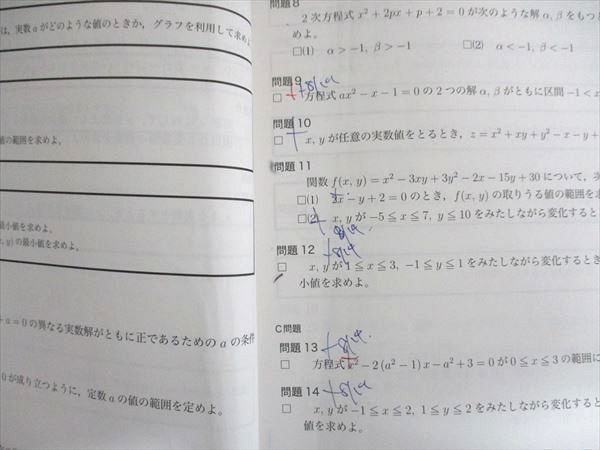 は，実数aがどのような値のときか，グラフを利用して求めよ
値の範囲を求めよ。
最小値を求めよ。
, y) の最小値を求めよ。
+a=0の異なる実数解がともに正であるためのaの条件
0が成り立つように，定数aの値の範囲を定めよ。
問題8
2次方程式 x²+2px+p+2=0が次のような解α, βをもつ
めよ。
□(1) α>-1, β>-1 □(2) α<-1, β<-1
問題9
8/29
□ 方程式 ax²-x-1=0の2つの解α, βがともに区間 -1<x
問題10
□ x, yが任意の実数値をとるとき，z=x²+xy+y²-x-y+
問題11
関数 f(x, y)=x²-3xy+3y²-2x-15y+30について，次
□(1) 2x-y+2=0のとき，f(x, y)の取りうる値の範囲を
□(2) x, yが-5≦x≦7, y≦10をみたしながら変化すると
8/29
問題12
8/29
□ x, yが1≦x≦3, -1≦y≦1をみたしながら変化するとき
小値を求めよ。
C問題
問題13
8/29
□ 方程式 x²-2(a²-1)x-a²+3=0が0≦x≦3の範囲に
問題14
8/29
□ x, yが-1≦x≦2, 1≦y≦2をみたしながら変化すると
値を求めよ。